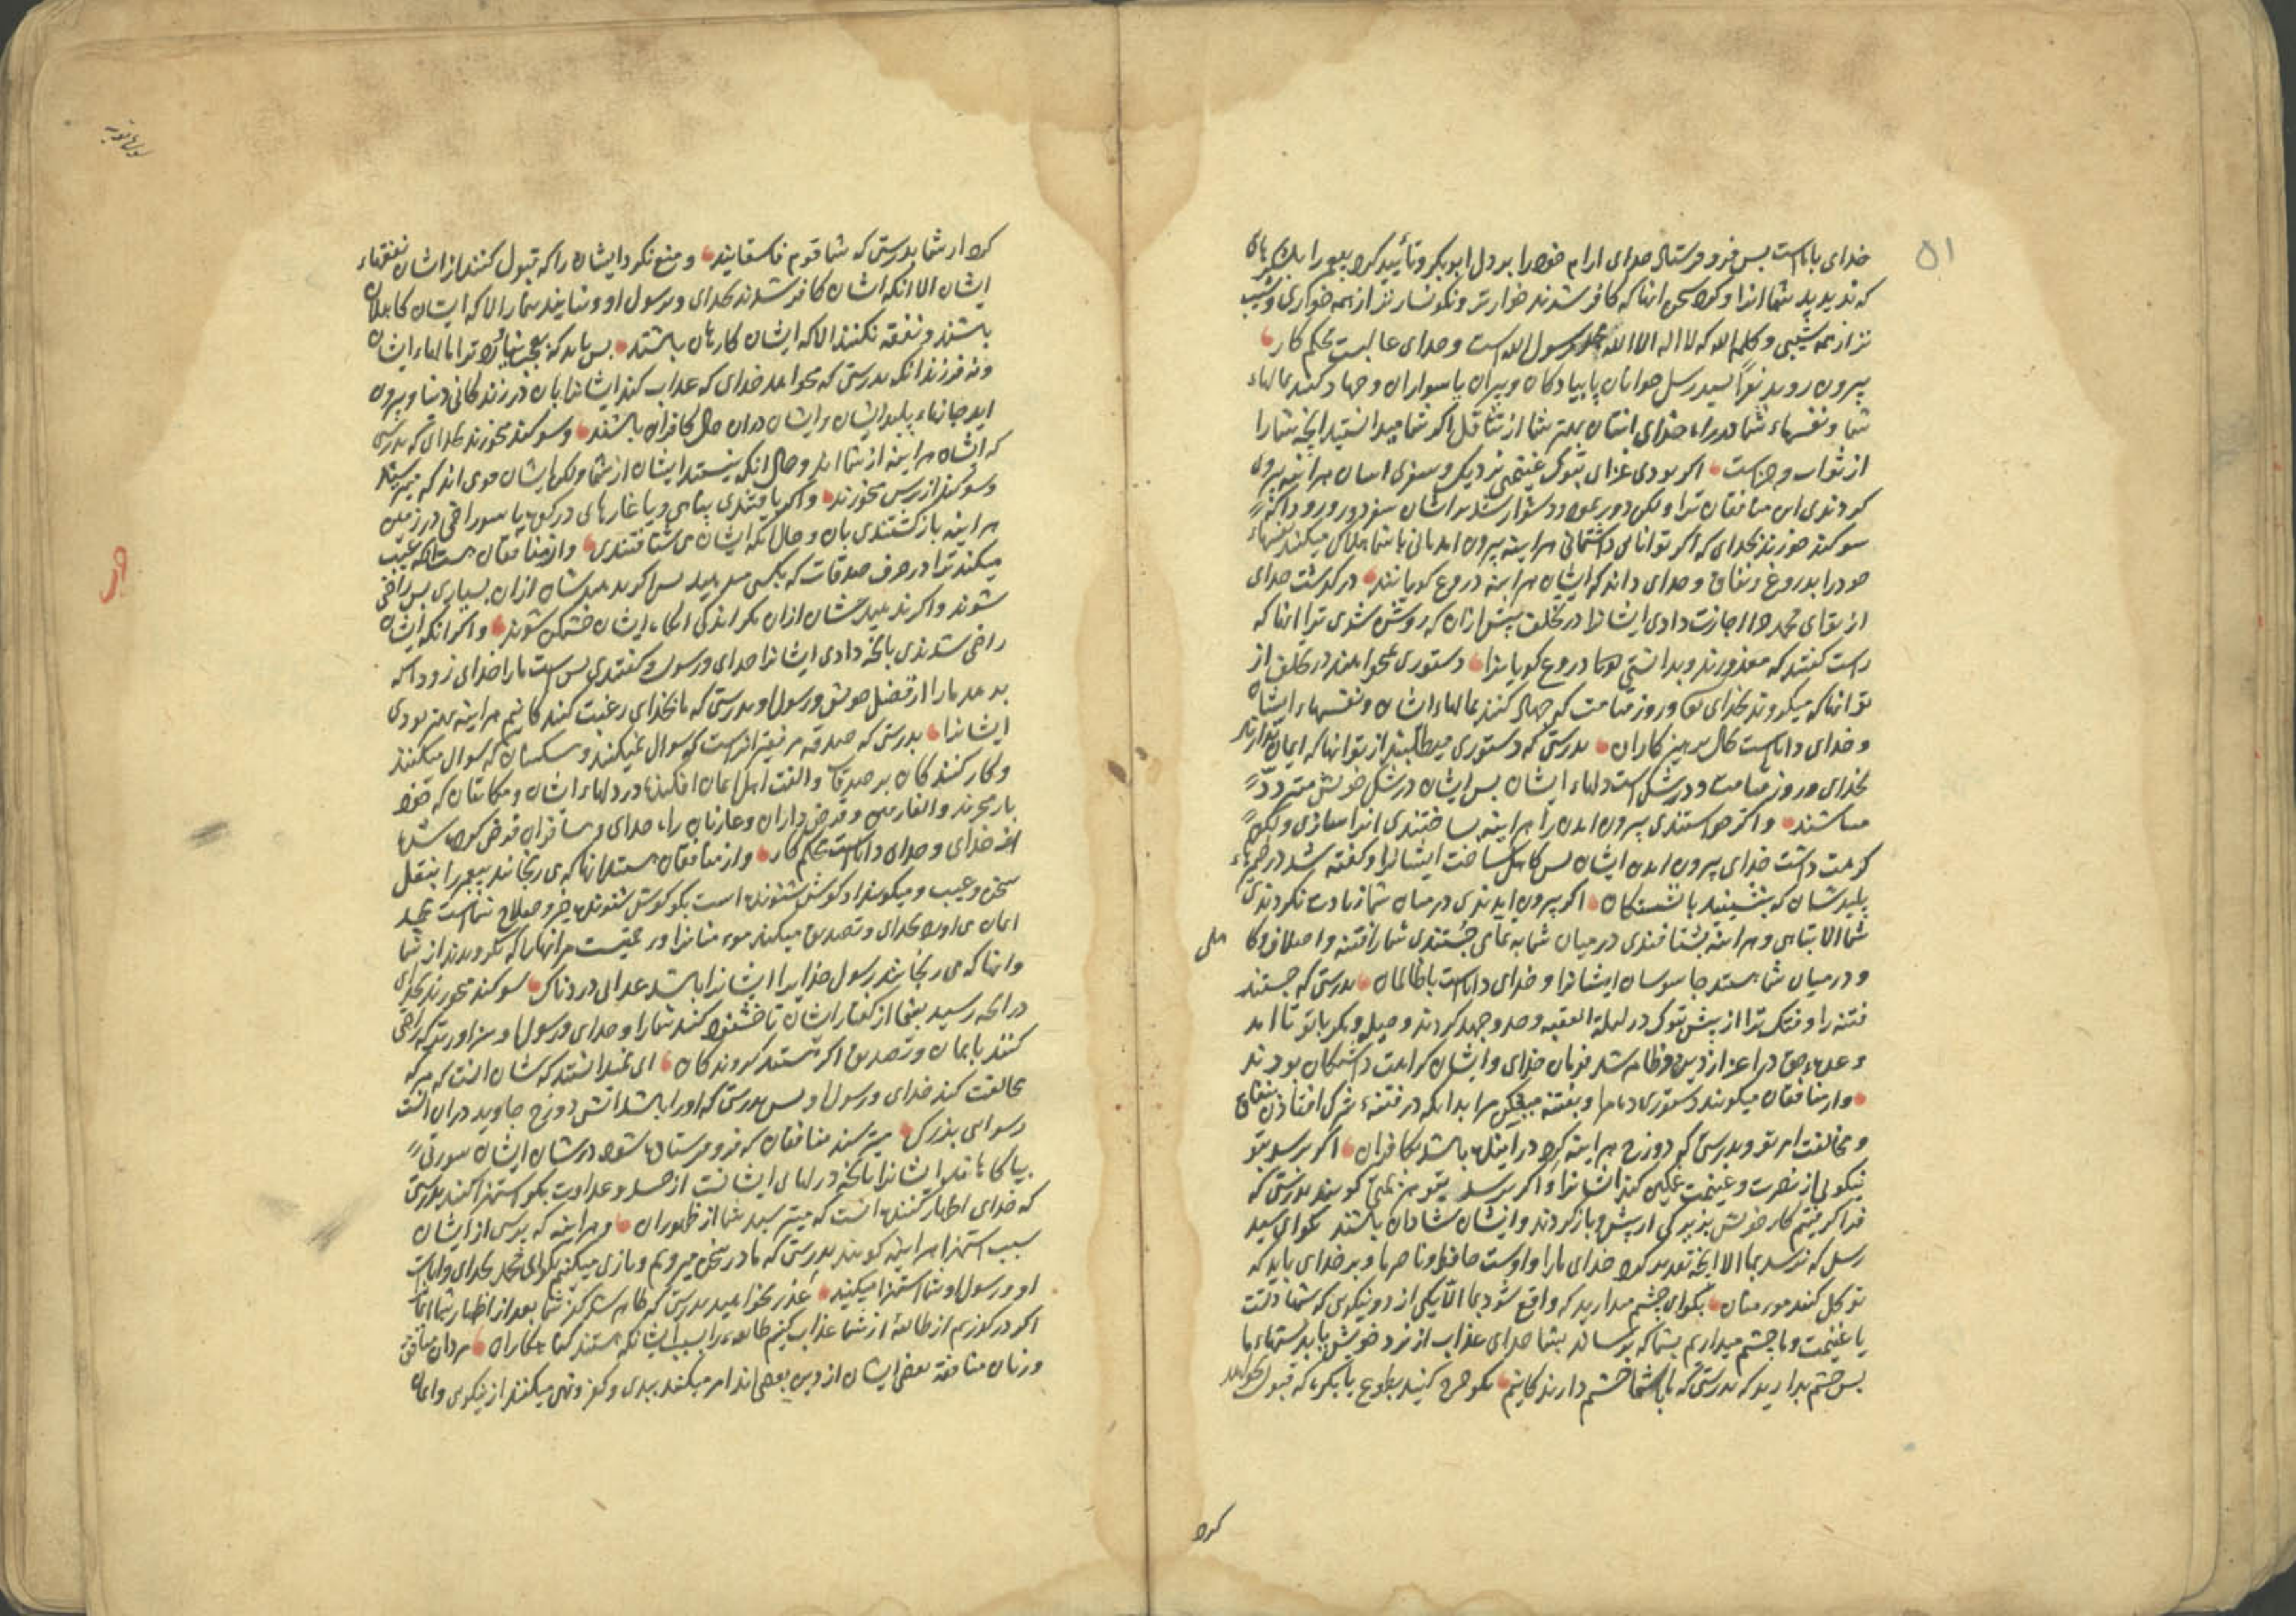 ۵۱
خدای با ماست پس فرو فرستاد خدای ارام خود را بر دل ابوبکر و تأیید کرد پیغمبر را بلشکرهای
که ندیدید شما انرا و کرد سخن انها که کافر شدند خوارتر و نکونسارتر از همه خواری و شیب
تر از همه شیبی و کلمه الله که لا اله الا الله محمد رسول الله است و خدای غالبست محکم کار
بیرون روید نوّاً سید رسل جوانان یا پیادکان و پیران یا سواران و جهاد کنید بمالهاء
شما و نفسهاء شما در راه خدای انتان بهتر شما از تثاقل اکر شما میدانستید انچه شما را
از ثواب و جزاست اکر بودی غزای تبوک غنیمتی نزدیک و سفری اسان هر اینه پیروی
کردندی این منافقان ترا ولکن دور بود و دشوار شد بر ایشان سفر دور و زود اکه
سوکند خورند بخدای که اکر توانای داشتمانی هر اینه بیرون امدمانی با شما هلاک میکنند نفسهاء
خود را بدروغ و نفاق و خدای داند که ایشان هر اینه دروغ کویانند در کذشت خدای
از تو ای محمد چرا اجازت دادی ایشانرا در تخلف پیش از ان که روشن شوی ترا انها که
راست کفتند که معذورند و بدانستی هم دروغ کویانرا دستوری نخواهند در تخلف از
تو انها که میکروند بخدای تع و روز قیامت که جهاد کنند بمالهاء ایشان و نفسهاء ایشان
و خدای داناست بحال پرهیز کاران بدرستی که دستوری میطلبند از تو انها که ایمان ندارند
بخدای و روز قیامت و در شک است دلهاء ایشان پس ایشان در شک خویش متردد
میباشند و اکر خواستندی بیرون امدن را هر اینه ساختندی انرا سازی ولکن
کراهت داشت خدای بیرون امدن ایشان پس کاهل ساخت ایشانرا و کفته شد در ضمیرهاء
پلیدشان که بنشینید با نشستکان اکر بیرون ایدندی در میان شما زیادت نکردندی
شما الا تباهی و هر اینه بشتافتندی در میان شما به نمامی جستندی شما را فتنه و اختلاف کلمه
و در میان شما هستند جاسوسان ایشانرا و خدای داناست با ظالمان بدرستی که جستند
فتنه را و فتک ترا از پیش تبوک در لیلة العقبه و جد و جهد کردند و حیل و مکر با تو تا امد
وعدهء حق در اعزاز دین و ظاهر شد فرمان خدای و ایشان کراهت داشتکان بودند
و از منافقان میکویند دستوری ده مرا و بفتنه میفکن مرا بدانکه در فتنهء شرک افتادن بنفاق
و مخالفت امر تو و بدرستی که دوزخ هر اینه کرد در اینده باشد بکافران اکر برسد بتو
نیکوئی از نصرت و غنیمت غمکین کند ایشانرا و اکر برسد بتو هزیمتی کویند بدرستی که
فرا کرفتیم کار خویش بزیرکی از پیش و باز کردند و ایشان شادان باشند بکو ای سید
رسل که نرسد بما الا انچه تقدیر کرد خدای ما را و اوست حافظ و ناصر ما و بر خدای باید که
توکل کنند مومنان بکو ای چشم میدارید که واقع شود بما الّا یکی از دو نیکوی که شهادتست
یا غنیمت و ما چشم میداریم بشما که برساند بشما خدای عذاب از نزد خویش یا بدستهاء ما
پس چشم بدارید که بدرستی که با شما چشم دارندکانیم بکو خرج کنید بطوع یا بکره که قبول نخواهد
کرد
سوره توبه
کرد از شما بدرستی که شما قوم فاسقانید و منع نکرد ایشان را که قبول کنند از ایشان نفقهاء
ایشان الا انکه ایشان کافر شدند بخدای و برسول او و نیایند بنماز الا که ایشان کاهلان
باشند و نفقه نکنند الا که ایشان کارهان باشند پس باید که بعجب نیارد ترا مالهاء ایشان
و نه فرزندانکه بدرستی که میخواهد خدای که عذاب کند ایشانرا بان در زندکانی دنیا و بیرون
اید جانهاء پلید ایشان و ایشان دران حال کافران باشند و سوکند میخورند بخدای که بدرستی
که ایشان هر اینه از شمااند و حال انکه نیستند ایشان از شما ولکن ایشان قومی اند که میترسند
و سوکند از ترس میخورند و اکر یافتندی پناهی و یا غارهای در کوه یا سوراخی در زمین
هر اینه باز کشتندی بان و حال انکه ایشان می شتافتندی و از منافقان هست انکه عیب
میکند ترا در صرف صدقات که بکسی میدهید پس اکر بدهیدشان ازان بسیاری پس راضی
شوند و اکر ندهیدشان ازان مکر اندکی انکاه ایشان خشمکن شوند و اکر انکه ایشان
راضی شدندی بانچه دادی ایشانرا خدای و رسول و کفتندی بس است ما را خدای زود اکه
بدهد ما را از فضل خویش و رسول او بدرستی که ما بخدای رغبت کنندکانیم هر اینه بهتر بودی
ایشانرا بدرستی که صدقه مر فقیرانراست که سوال نمیکنند و مسکینان که سوال میکنند
و کار کنندکان بر صدقات و الفت اهل ایمان افکنده در دلهاء ایشان و مکاتبان که خود
باز میخرند و الغارمین و قرض داران و غازیان راه خدای و مسافران فرض کرده شده
از خدای و خدای داناست محکم کار و از منافقان هستند انها که می رنجانند پیغمبر را بنقل
سخن و عیب و میکویند او کوش شنونده است بکو کوش شنونده خیر و صلاح شماست محمد
ایمان می اورد بخدای و تصدیق میکند مومنانرا و رحمتست مر انهارا که بکرویدند از شما
و انها که می رنجانند رسول خدایرا ایشانرا باشد عذابی دردناک سوکند میخورند بخدای
در انچه رسید بشما از کفتار ایشان تا خشنود کنند شما را و خدای و رسول او سزاوارتر که راضی
کنند بایمان و تصدیق اکر هستند کروندکان ای نمیدانستند که شان انست که هر که
مخالفت کند خدای و رسول او پس بدرستی که او را باشد اتش دوزخ جاوید دران انست
رسوایی بزرک میترسند منافقان که فرو فرستاده شود در شان ایشان سورتی
بیاکاهاند ایشانرا بانچه در دلهای ایشانست از حسد و عداوت بکو استهزا کنند بدرستی
که خدای اظهار کننده انست که میترسید شما از ظهوران و هر اینه که پرسی از ایشان
سبب استهزا هر اینه کویند بدرستی که ما در سخن میرویم و بازی میکنیم بکو ای محمد بخدای و ایات
او و رسول او شما استهزا میکنید عذر نخواهید بدرستی که ظاهر شد کفر شما بعد از اظهار شما ایمان
اکر در کذریم از طائفهٔ از شما عذاب کنیم طائفهء را بسبب ایشانکه هستند کناهکاران مردان منافق
و زنان منافقه بعض ایشان از دین بعضی اند امر میکنند ببدی و کفر و نهی میکنند از نیکوی و ایمان